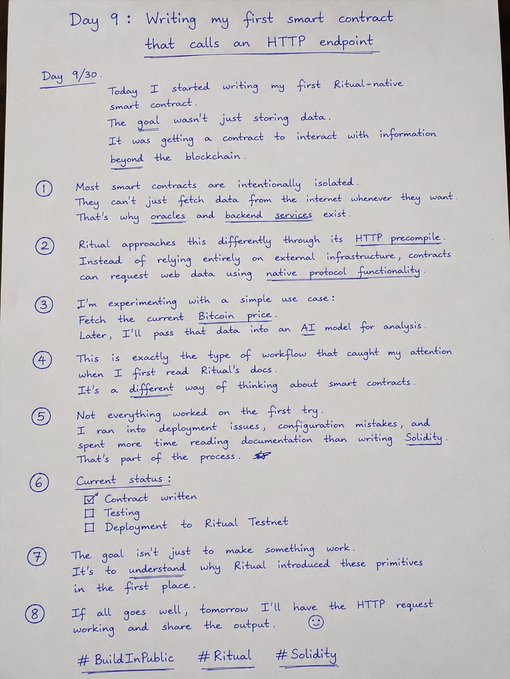 Day 9 : Writing my first smart contract
that calls an HTTP endpoint
Day 9/30.
Today I started writing my first Ritual-native
smart contract.
The goal wasn't just storing data.
It was getting a contract to interact with information
beyond the blockchain.
1 Most smart contracts are intentionally isolated.
They can't just fetch data from the internet whenever they want.
That's why oracles and backend services exist.
2 Ritual approaches this differently through its HTTP precompile.
Instead of relying entirely on external infrastructure, contracts
can request web data using native protocol functionality.
3 I'm experimenting with a simple use case:
Fetch the current Bitcoin price.
Later, I'll pass that data into an AI model for analysis.
4 This is exactly the type of workflow that caught my attention
when I first read Ritual's docs.
It's a different way of thinking about smart contracts.
5 Not everything worked on the first try.
I ran into deployment issues, configuration mistakes, and
spent more time reading documentation than writing Solidity.
That's part of the process.
6 Current status:
☑ Contract written
☐ Testing
☐ Deployment to Ritual Testnet
7 The goal isn't just to make something work.
It's to understand why Ritual introduced these primitives
in the first place.
8 If all goes well, tomorrow I'll have the HTTP request
working and share the output. ☺
# BuildInPublic # Ritual # Solidity